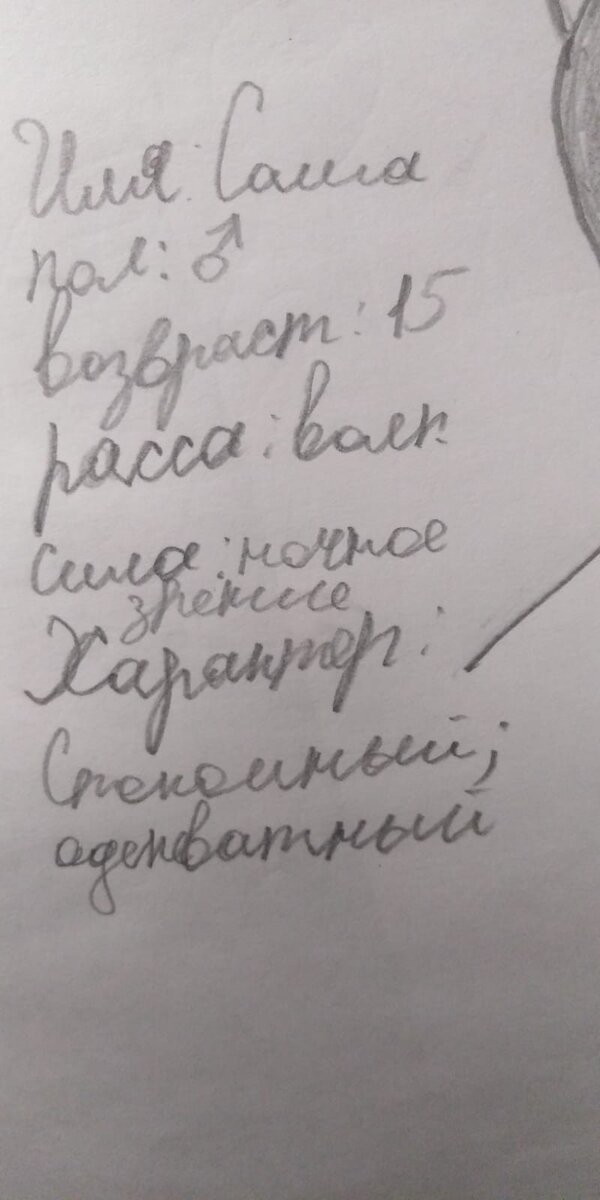 Имя: Саша
пол: ♂
возвраст: 15
расса: волк
сила: ночное
зрение
Характер:
Спокоиный;
адекватный